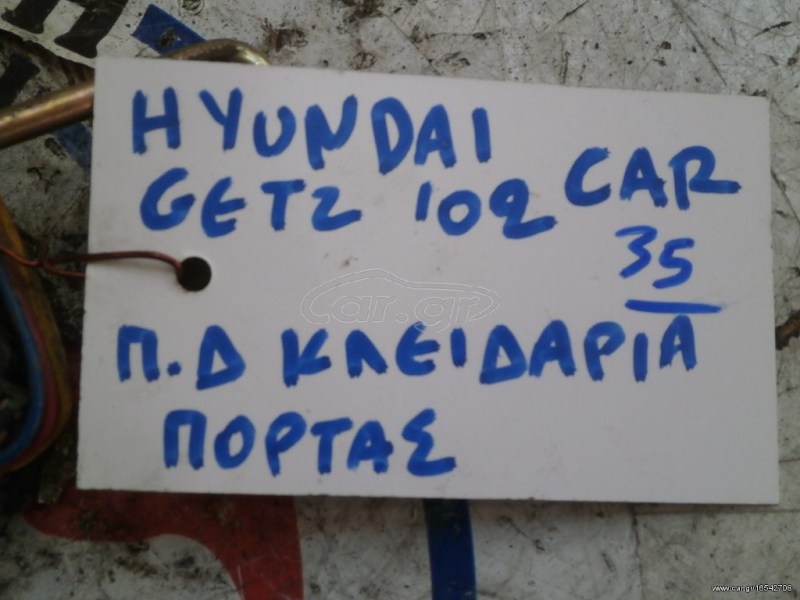 HYUNDAI
GETZ '02 CAR
35
Π.Δ ΚΛΕΙΔΑΡΙΑ
ΠΟΡΤΑΣ
car.gr
www.car.gr/16542706